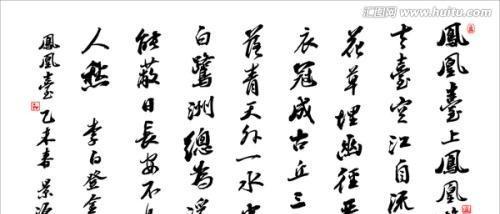 汇图网 www.huitu.com
鳳凰臺上鳳凰
去臺空江自流
花草埋幽徑
衣冠成古丘三
落青天外一水
白鷺洲總為浮
能蔽日長安不
人愁 李白登金
鳳凰臺 乙未春 景